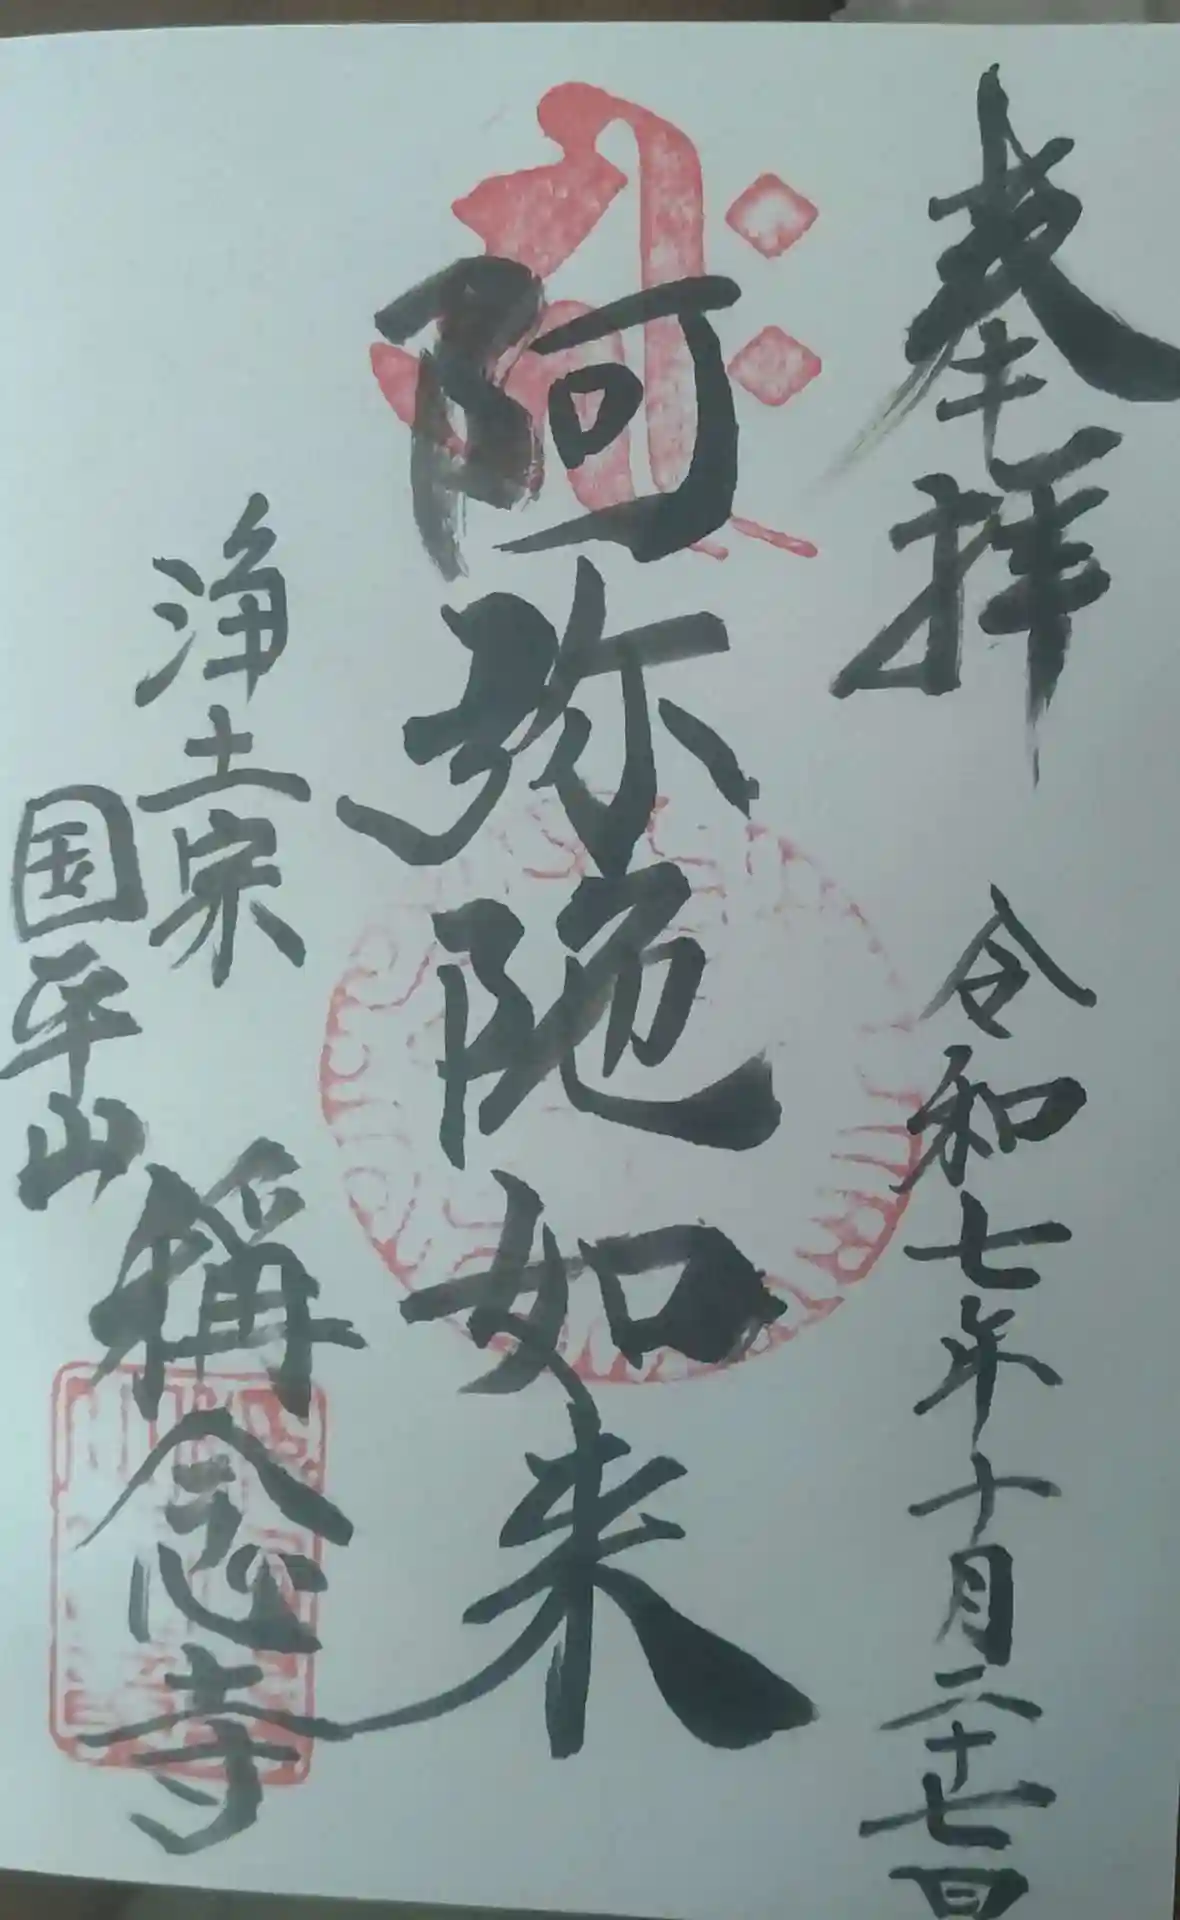 奉拝
令和七年十月二十七日
阿弥陀如来
浄土宗
国平山
稱念寺